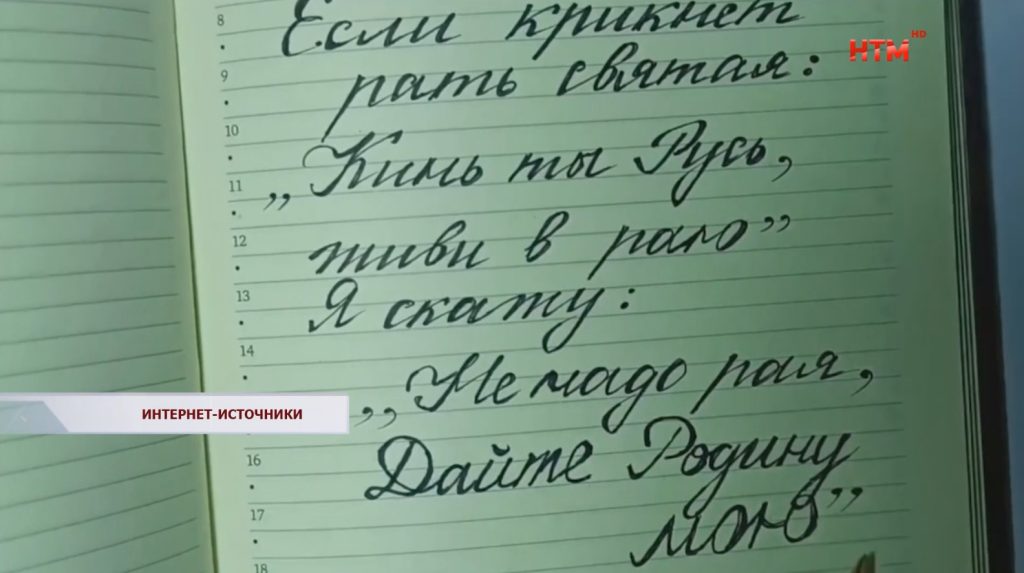 8
Если крикнет
НТМ HD
9
рать святая:
10
„Кинь ты Русь,
11
12
живи в раю”
13
Я скажу:
14
„Не надо рая,
ИНТЕРНЕТ-ИСТОЧНИКИ
16
Дайте Родину
17
мою”
18